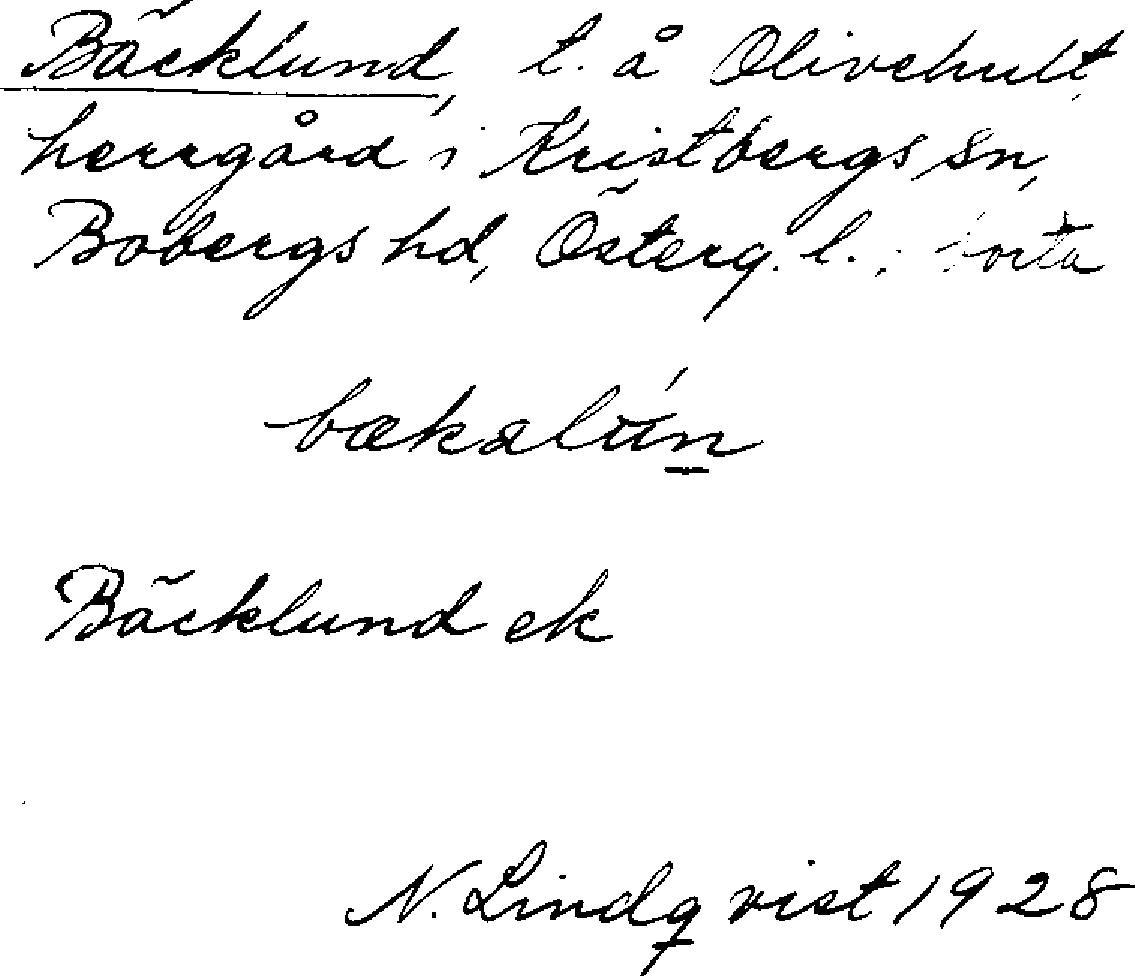 Bäcklund, t. å Olivehult,
herrgård i Kristbergs sn,
Bobergs hd, Österg. l.; borta
bækalún
Bäcklund ek
N. Lindqvist 1928